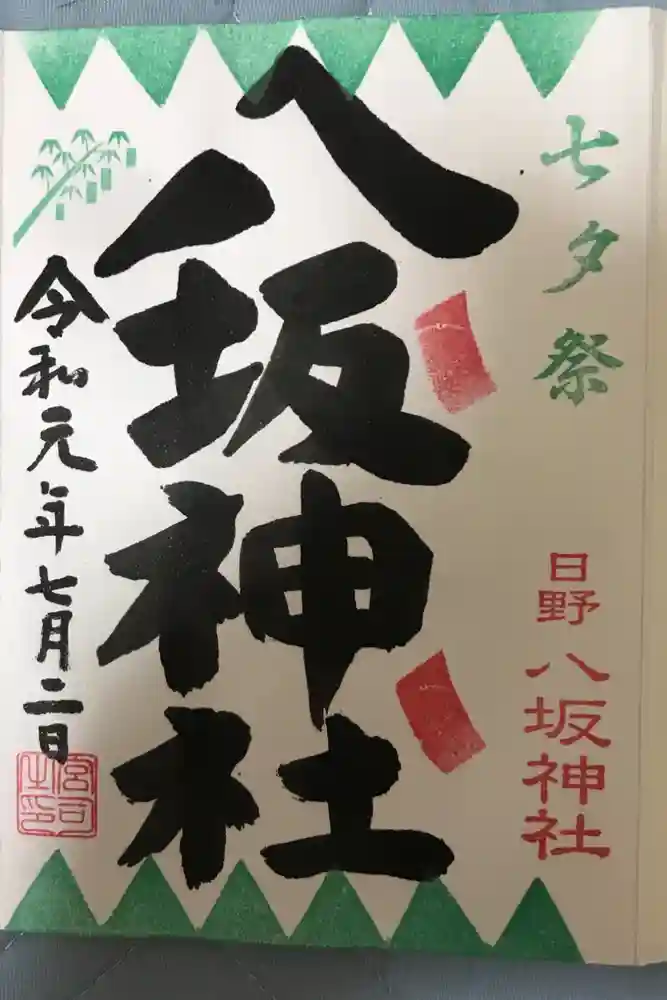 七夕祭
日野八坂神社
八坂神社
令和元年七月二日
宮司之印